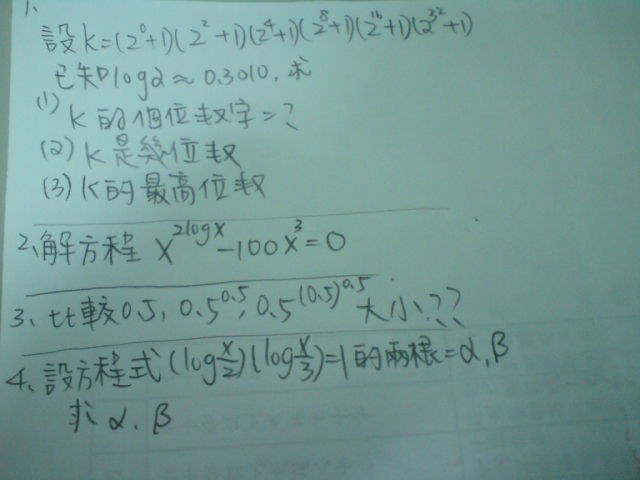 1、
設k=(2⁰+1)(2²+1)(2⁴+1)(2⁸+1)(2¹⁶+1)(2³²+1)
已知log2≈0.3010,求
(1) k的個位數字=?
(2) k是幾位數
(3) k的最高位數
2、解方程 x^(2logx)-100x³=0
3、比較0.5, 0.5^0.5, 0.5^(0.5)^0.5 大小??
4、設方程式(log x/2)(log x/3)=1的兩根=α,β
求α,β